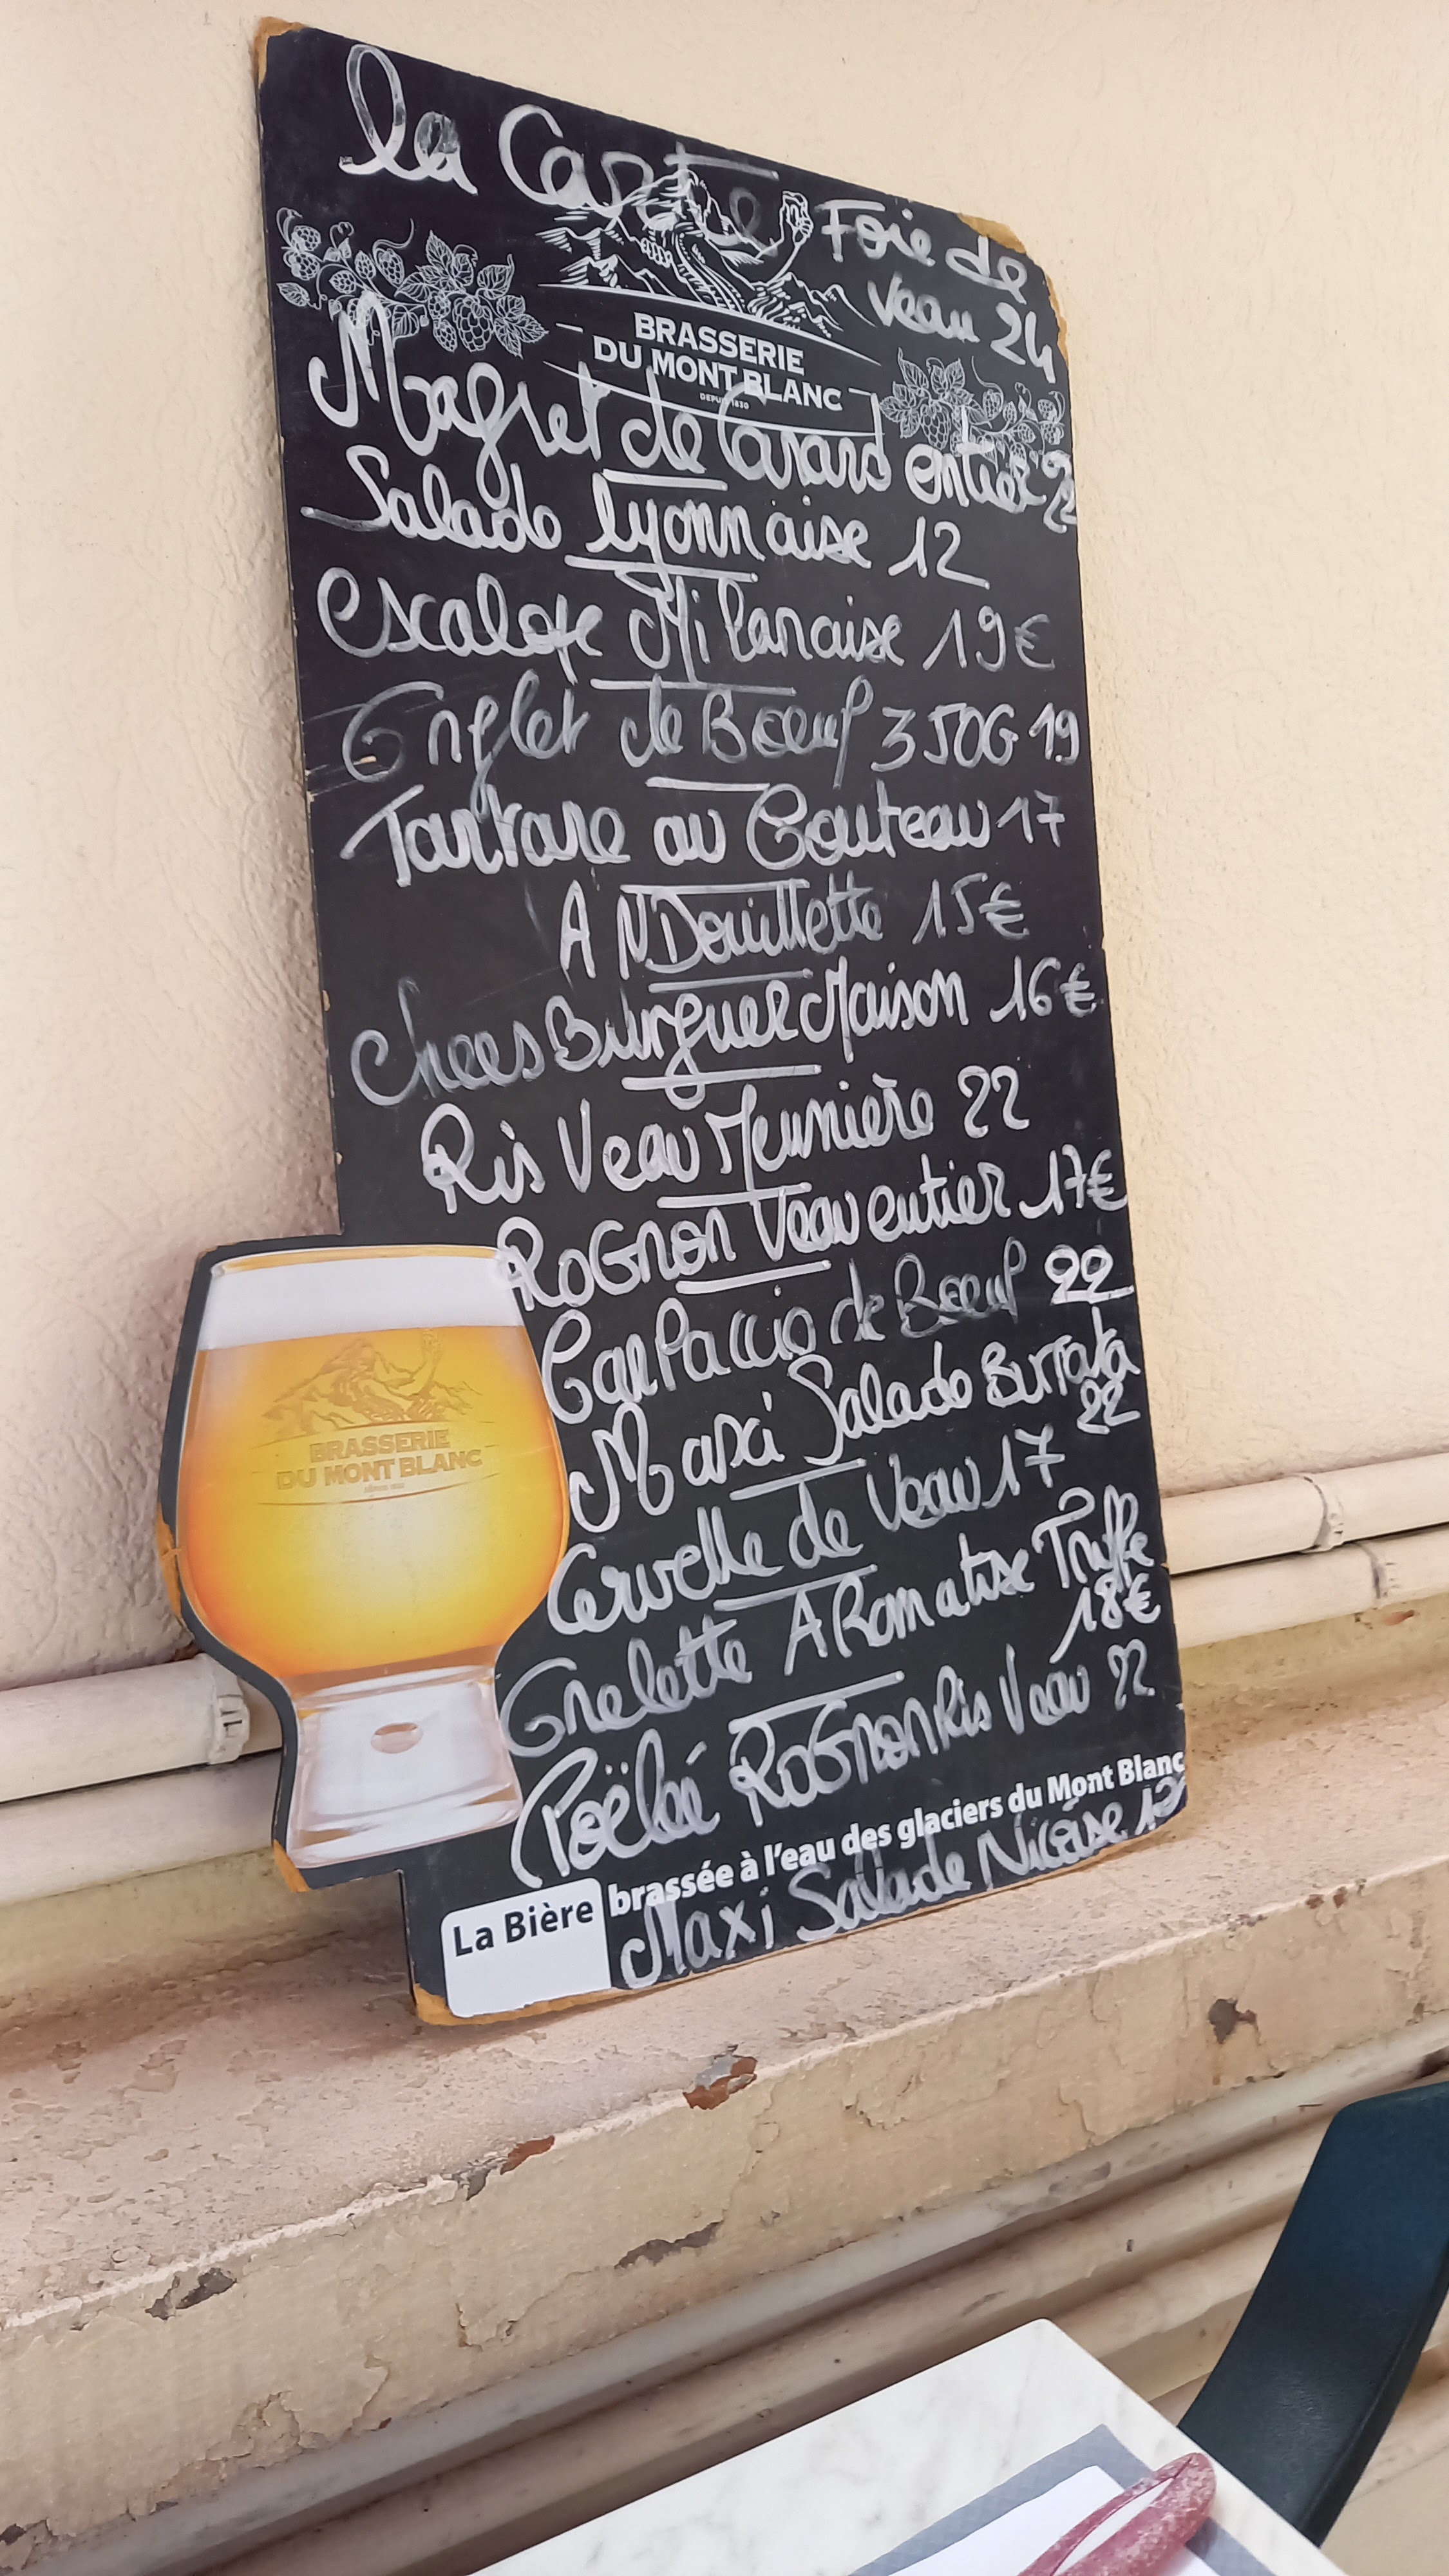 la Carte
Foie de
Veau 24
BRASSERIE
DU MONT BLANC
DEPUIS 1830
Magret de Canard entier 22
Salade lyonnaise 12
Escalope Milanaise 19€
Onglet de Boeuf 350G 19
Tartare au Couteau 17
ANDouillette 15€
Chees Burguer Maison 16€
Ris Veau Meunière 22
RoGnon Veau entier 17€
CarPaccio de Boeuf 22
Maxi Salade Burrata
22
Cervelle de Veau 17
BRASSERIE
DU MONT BLANC
Grelette ARomatisé Truffe
18€
Poëlée RoGnon Ris Veau 22
La Bière brassée à l'eau des glaciers du Mont Blanc
Maxi Salade Niçoise